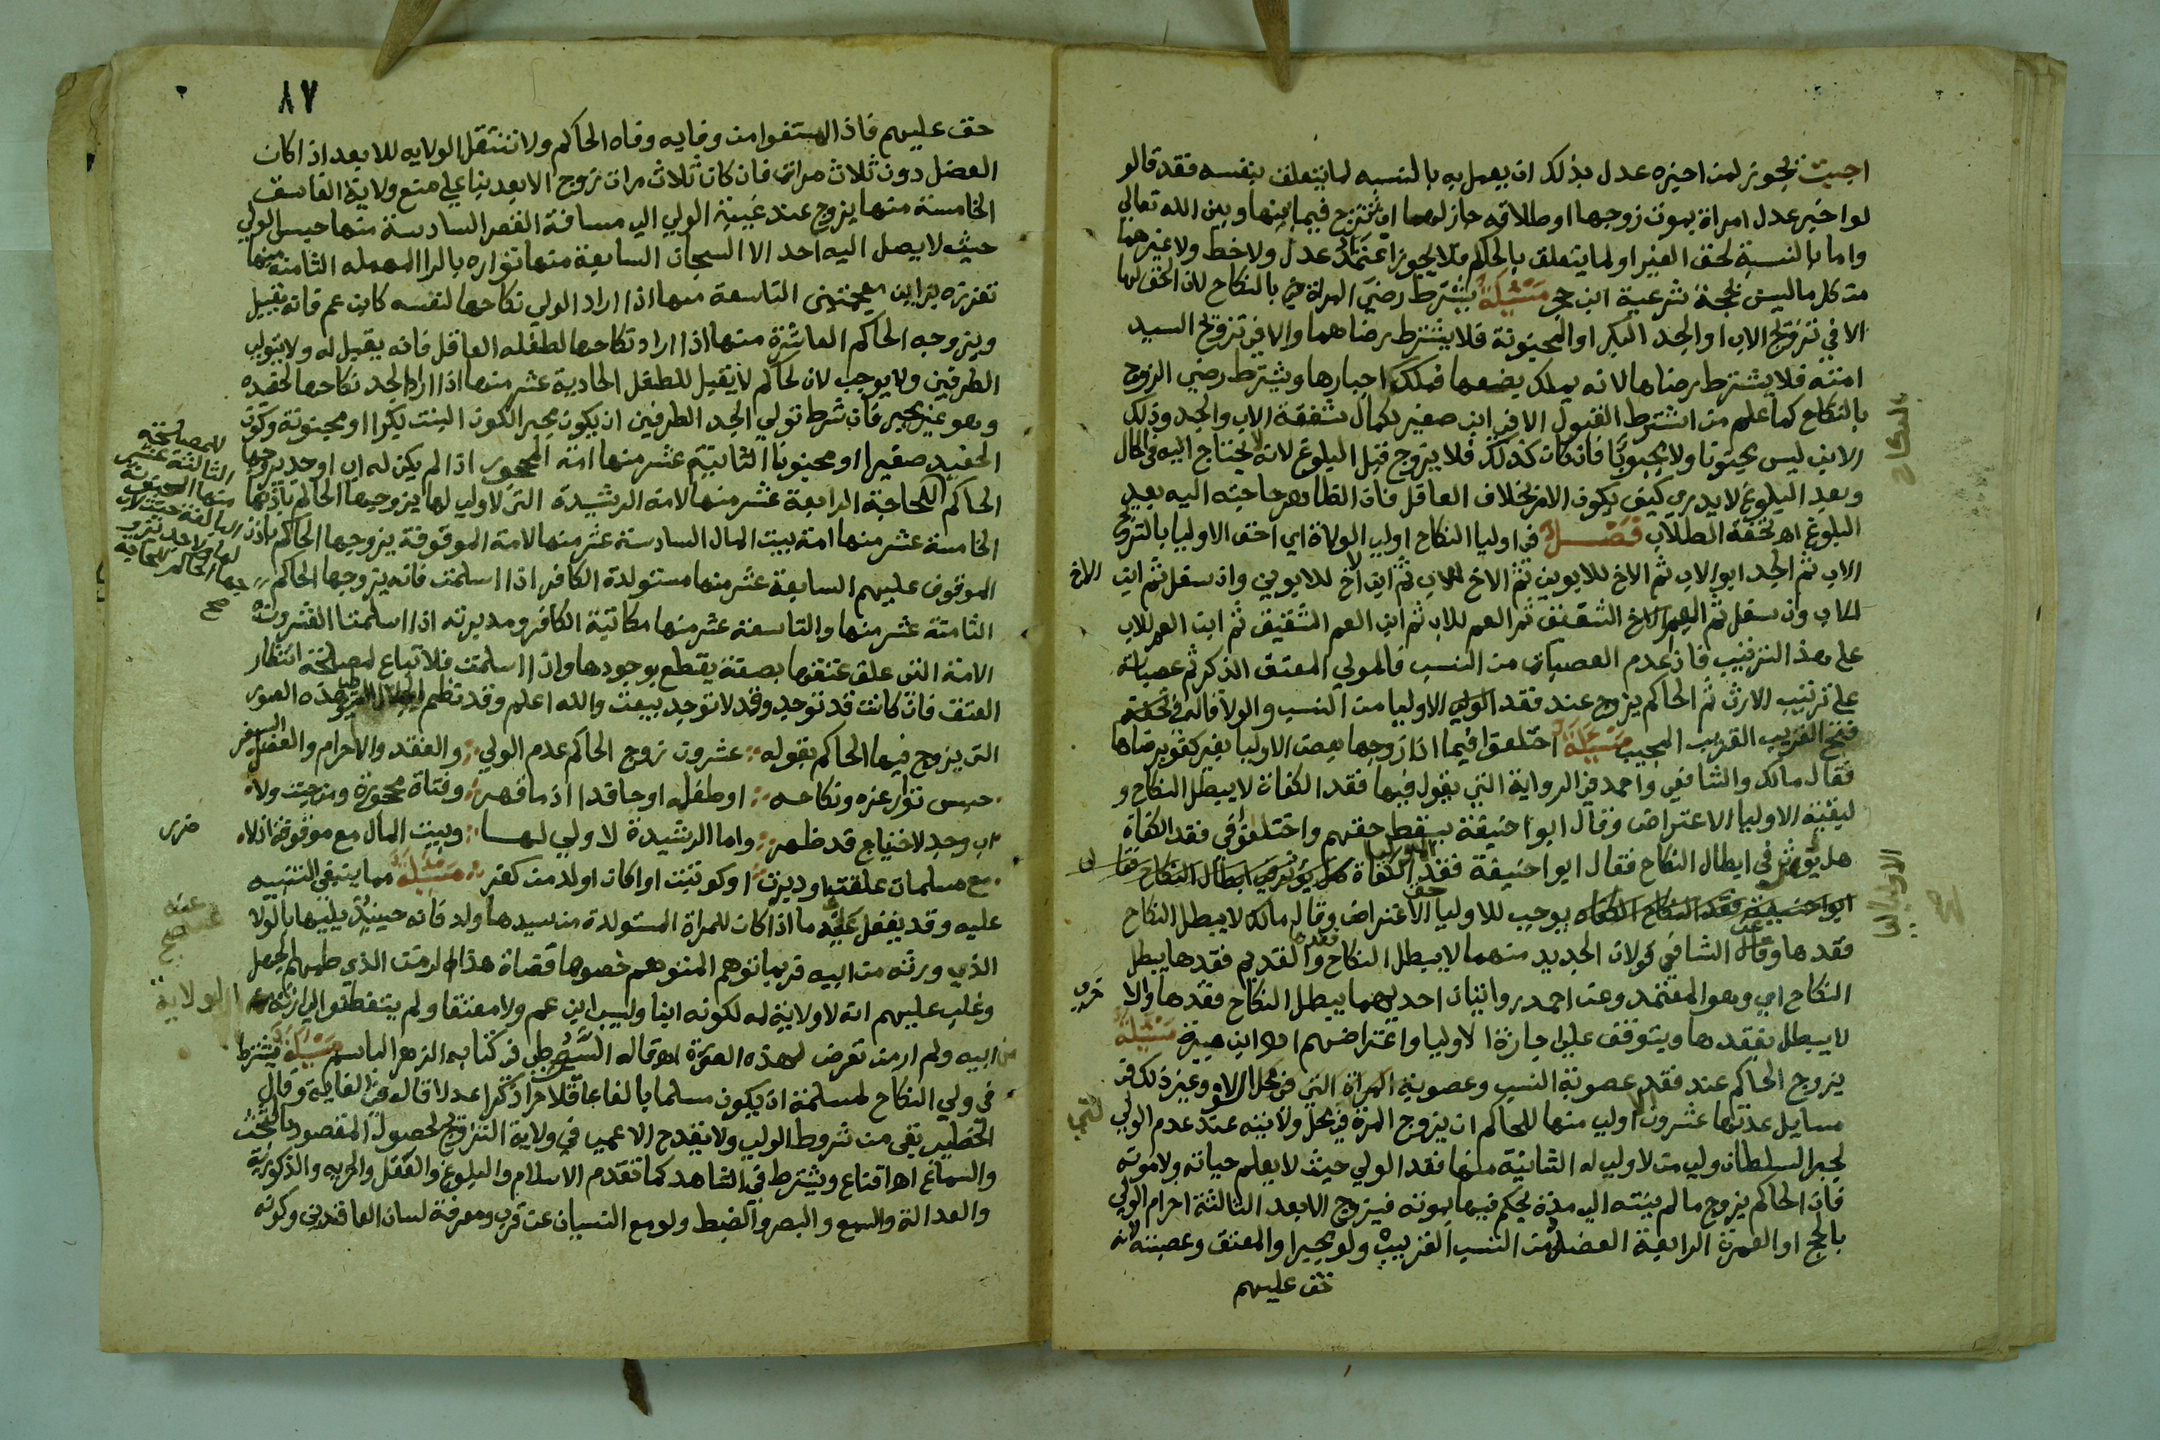 اجيت يجوز لمن اخبره عدل بذلك ان يعمل به بالنسبه لما يتعلق بنفسه فقد قالو
لو اخبر عدل امراة بموت زوجها او طلاقه جاز لها ان تتزوج فيما بينها وبين الله تعالى
واما بالنسبة لحق الغير او لما يتعلق بالحكم فلا يجوز اعتماد عدل ولا خط ولا غيرهما
من كل ما ليس بحجة شرعية ابن حجر مسئلة يشترط رضى المراة بالنكاح لان الحق لها
الا في تزويج الاب او الجد البكر او المجنونة فلا يشترط رضاهما والا في تزويج السيد
امته فلا يشترط رضاها لانه يملك بضعها فملك اجبارها ويشترط رضى الزوج
بالنكاح كما علم من اشتراط القبول الا في ابن صغير لكمال شفقة الاب والجد وذلك
الابن ليس مجنونا ولا مجبوبا فان كان كذلك فلا يزوج قبل البلوغ لانه لا يحتاج اليه في الحال
وبعد البلوغ لا يدري كيف يكون الامر بخلاف العاقل فان الظاهر حاجته اليه بعد
البلوغ اه تحفة الطلاب فصل في اوليا النكاح اولى الولاة اي احق الاوليا بالتزويج
الاب ثم الجد ابو الاب ثم الاخ للابوين ثم الاخ للاب ثم ابن الاخ للابوين وان سفل ثم ابن الاخ
للاب وان سفل ثم العم الشقيق ثم العم للاب ثم ابن العم الشقيق ثم ابن العم للاب
على هذا الترتيب فان عدم العصبات من النسب فالمولى المعتق الذكر ثم عصباته
على ترتيب الارث ثم الحاكم يزوج عند فقد الاوليا من النسب والولا قاله في
فتح القريب المجيب مسئلة اختلفوا فيما اذا زوجها بعض الاوليا بغير كفو برضاها
فقال مالك والشافعي واحمد في الرواية التي يقول فيها فقد الكفاة لا يبطل النكاح و
لبقية الاوليا الاعتراض وقال ابو حنيفة يسقط حقهم واختلفوا في فقد الكفاة
هل يوثر في ابطال النكاح فقال ابو حنيفة فقد الكفاة
يوجب للاوليا حق الاعتراض وقال مالك لا يبطل النكاح
فقدها وقال الشافعي قولان الجديد منهما لا يبطل النكاح والقديم فقدها يبطل
النكاح اي وهو المعتمد وعن احمد روايتان احديهما يبطل النكاح فقدها والا
لا يبطل بفقدها ويتوقف على اجازة الاوليا واعتراضهم اه ابن هبيرة مسئلة
يزوج الحاكم عند فقد عصوبة النسب وعصوبة وغير ذلك في
مسايل عدتها عشرون اولى منها للحاكم ان يزوج المرة في محل ولايته عند عدم الولي
لخبر السلطان ولي من لا ولي له الثانية منها فقد الولي حيث لا يعلم حياته ولا موته
فان الحاكم يزوج ما لم ينته الى مدة يحكم فيها بموته فيزوج الابعد الثالثة احرام الولي
بالحج او العمرة الرابعة العضل من النسب القريب ولو مجبرا والمعتق وعصبته لانه
حق عليهم
بالنكاح
٨٧
حق عليهم فاذا امتنعوا من وفايه وفاه الحاكم ولا تنتقل الولايه للابعد اذا كان
العضل دون ثلاث مرات فان كان ثلاث مرات زوج الابعد بنا على منع ولاية الفاسق
الخامسة منها يزوج عند غيبة الولي الى مسافة القصر السادسة منها حبس الولي
حيث لا يصل اليه احد الا السجان السابعة منها تواره بالرا المهمله الثامنة منها
تعززه بزاين معجمتين التاسعة منها اذا اراد الولي نكاحها لنفسه كابن عم فانه يقبل
ويزوجه الحاكم العاشرة منها اذا اراد نكاحها لطفله العاقل فانه يقبل له ولا يتولى
الطرفين ولا يوجب لان الحاكم لا يقبل للطفل الحادية عشر منها اذا اراد الجد نكاحها لحفده
وهو غير مجبر فان شرط تولي الجد الطرفين ان يكون مجبرا لكون البنت بكرا او مجنونة وكون
الحفيد صغيرا او مجنونا الثانية عشر منها امة المحجور اذا لم يكن له اب او جد يزوجها
الحاكم للحاجة الرابعة عشر منها الامة الرشيدة التي لا ولي لها يزوجها الحاكم باذنها
الخامسة عشر منها امة بيت المال السادسة عشر منها الامة الموقوفة يزوجها الحاكم باذن
الموقوف عليهم السابعة عشر منها مستولدة الكافر اذا اسلمت فانه يزوجها الحاكم
الثامنة عشر منها والتاسعة عشر منها مكاتبة الكافر ومدبرته اذا اسلمتا العشرون
الامة التي علق عتقها بصفة يقطع بوجودها واذا اسلمت فلا تباع لمصلحة انتظار
العتق فان كانت قد توجد وقد لا توجد بيعت والله اعلم وقد نظم هذه الصور
التي يزوج فيها الحاكم بقوله عشرون زوج الحاكم عدم الولي والفقد والاحرام والعضل السفر
حبس توار عزه ونكاحه او طفله او حافدا اذ ما قهر وفتاة محجورة ومن جنت ولا
اب وجد لاحتياج قد ظهر واما الرشيدة لا ولي لها وبيت المال مع موقوفة اذ لا ضرر
مع مسلمات علقت او دبرت او كوتبت او كان اولد من كفر مسئلة مما ينبغي التنبيه
عليه وقد يغفل عنه ما اذا كان للمراة المستولدة من سيدها ولد فانه حينيذ يليها بالولا
الذي ورثه من ابيه فربما توهم المتوهم خصوصا قضاة هذا الزمن الذي طمهم الجهل
وغلب عليهم انه لا ولاية له لكونه ابنا وليس ابن عم ولا معتقا ولم يتفطنوا الى ارثه الولاية
من ابيه ولم ار من تعرض لهذه الصورة اه قاله في كتابه الزهر الباسم مسئلة يشترط
في ولي النكاح لمسلمة ان يكون مسلما بالغا عاقلا حرا ذكرا عدلا قاله في الغاية وقال
الخطيب بقي من شروط الولي ولا يقدح الاعمى في ولاية التزويج لحصول المقصود بالبحث
والسماع اه اقناع ويشترط في الشاهد كما تقدم الاسلام والبلوغ والعقل والحريه والذكورية
والعدالة والسمع والبصر والضبط ولو مع النسيان عن قرب ومعرفة لسان العاقدين وكونه
الثالثة عشر
منها المجنونة
البالغة حيث لا
اب ولا جد يزو
جها الحاكم
صح